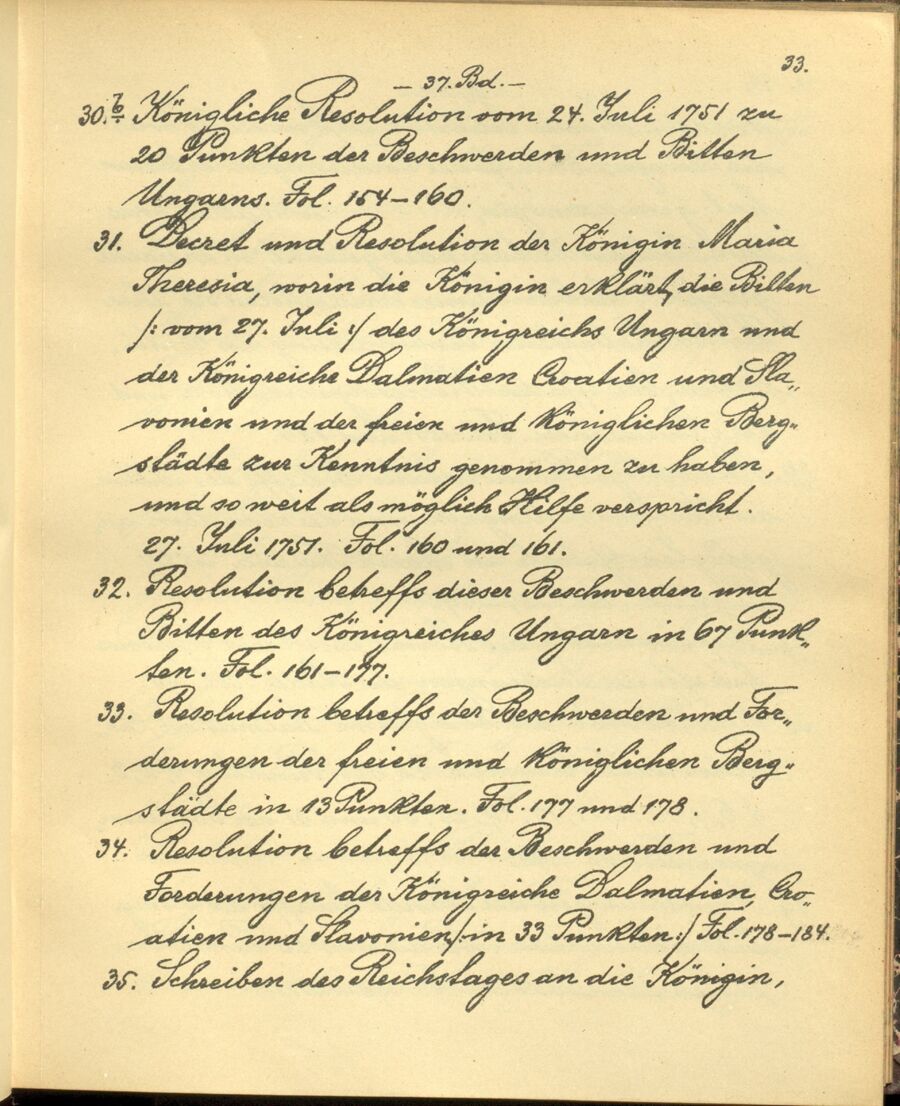 33.
— 37. Bd. —
30. b. Königliche Resolution vom 24. Juli 1751 zu
20 Punkten der Beschwerden und Bitten
Ungarns. Fol. 154–160.
31. Decret und Resolution der Königin Maria
Theresia, worin die Königin erklärt, die Bitten
/: vom 27. Juli :/ des Königreichs Ungarn und
der Königreiche Dalmatien Croatien und Sla„
vonien und der freien und königlichen Berg„
städte zur Kenntnis genommen zu haben,
und so weit als möglich Hilfe verspricht.
27. Juli 1751. Fol. 160 und 161.
32. Resolution betreffs dieser Beschwerden und
Bitten des Königreiches Ungarn in 67 Punk„
ten. Fol. 161–177.
33. Resolution betreffs der Beschwerden und For„
derungen der freien und königlichen Berg„
städte in 13 Punkten. Fol. 177 und 178.
34. Resolution betreffs der Beschwerden und
Forderungen der Königreiche Dalmatien, Cro„
atien und Slavonien /: in 33 Punkten :/ Fol. 178–184.
35. Schreiben des Reichstages an die Königin,